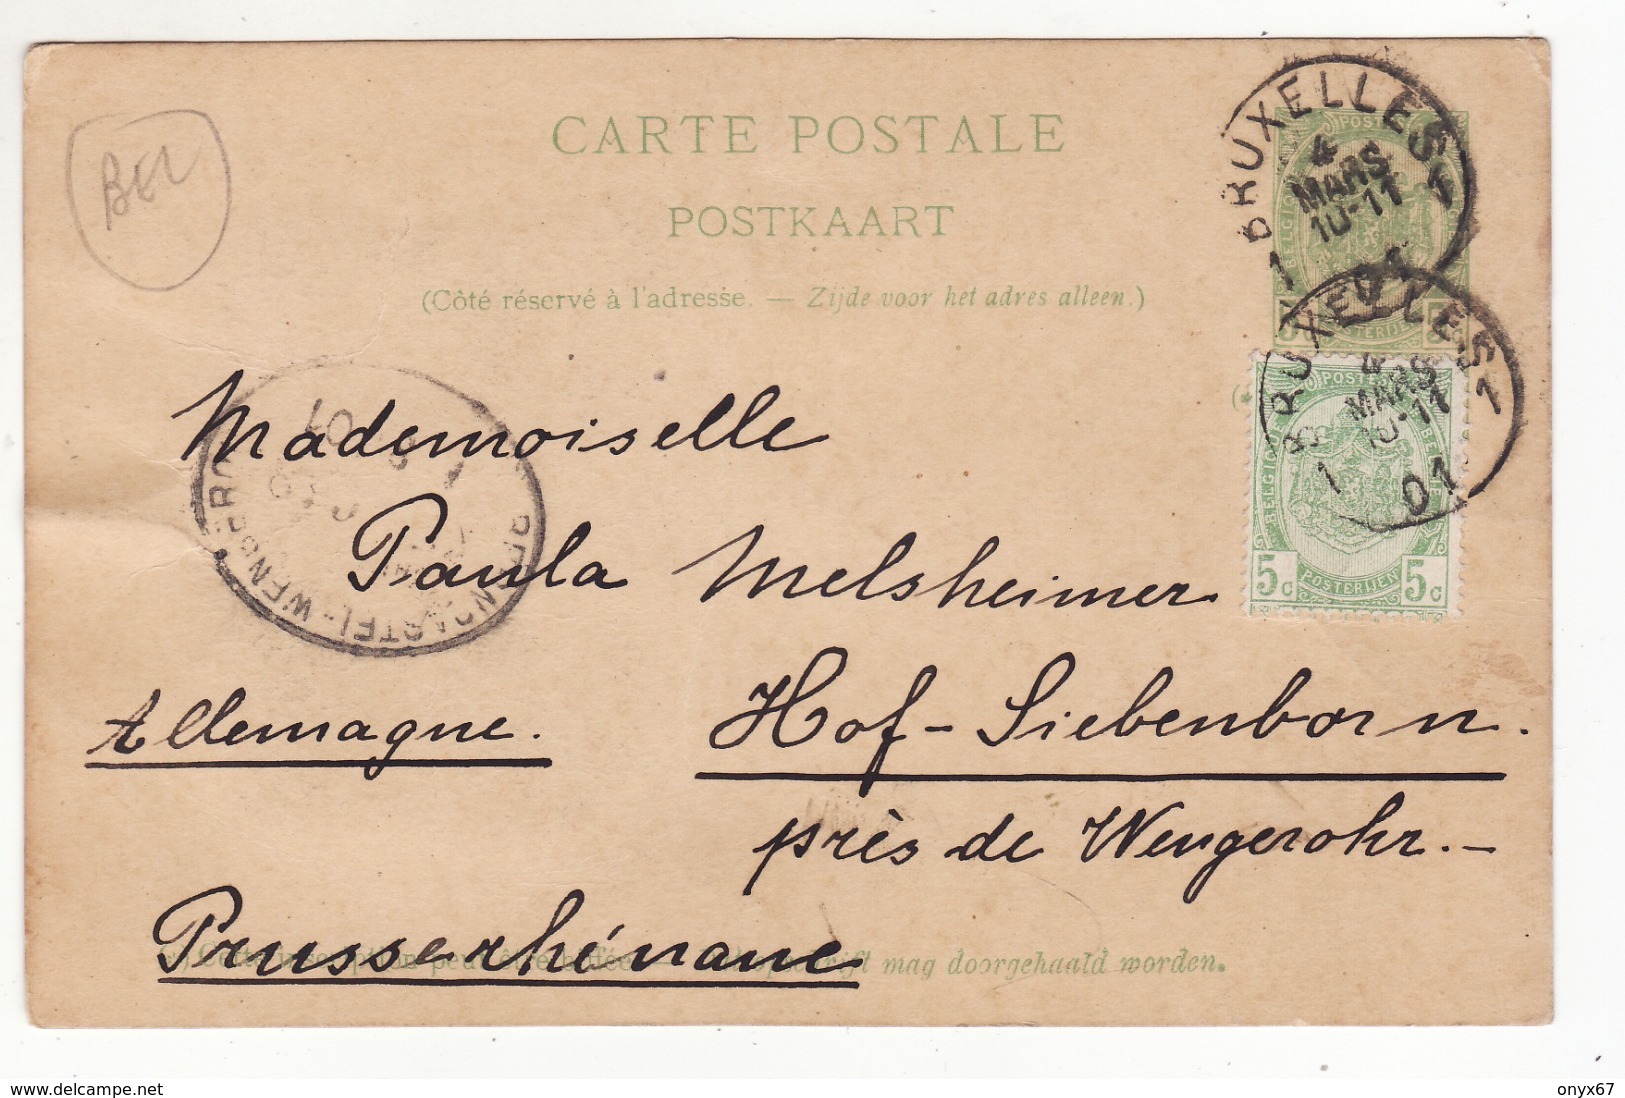 BEL
CARTE POSTALE
POSTKAART
(Côté réservé à l'adresse. — Zijde voor het adres alleen.)
BRUXELLES 1
4
MARS
10-11
1
BRUXELLES 1
4
MARS
10-11
1 01
POSTES
BELGIQUE
POSTERIJEN
5
POSTES
BELGIQUE
BELGIE
5c POSTERIJEN 5c
Mademoiselle
Paula Melsheimer
Allemagne.
Hof-Siebenborn.
près de Wengerohr.-
Prusse rhénane
mag doorgehaald worden.
delcampe.net
onyx67